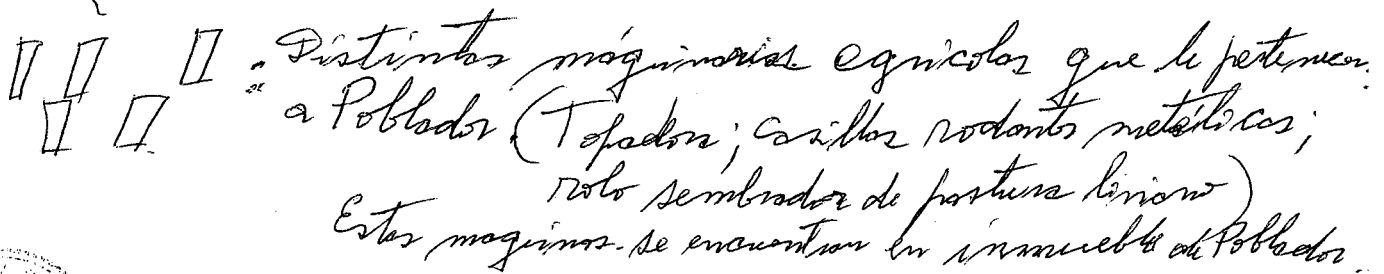 : Distintas máquinarias agricolas que le pertenecen.
a Poblador. (Topadora; casillas rodants metálicas;
rolo sembrador de pastura liviano)
Estas maquinas se encuentran en inmueble de Poblador.